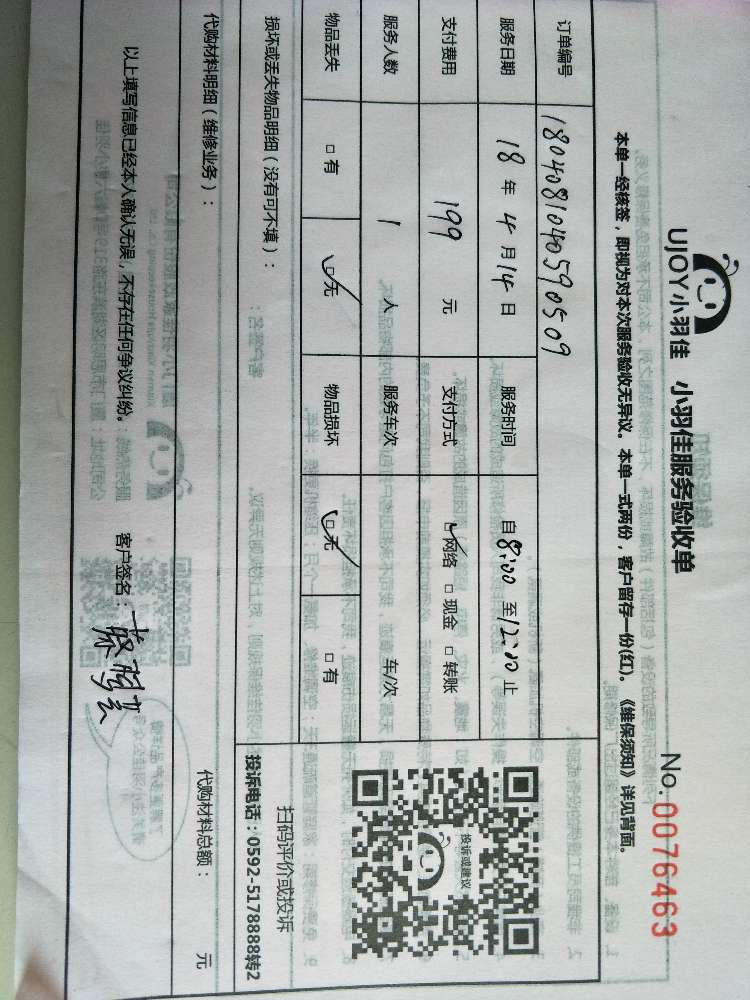 UJOY小羽佳 小羽佳服务验收单
No.0076463
本单一经核签，即视为对本次服务验收无异议。本单一式两份，客户留存一份(红)。《维保须知》详见背面。
订单编号 180408104059050 9
服务日期 18 年 4 月 14 日 服务时间 自 8:00 至 12:00 止
支付费用 199 元 支付方式 ☑网络 □现金 □转账
服务人数 1 人 服务车次 车/次
物品丢失 □有 ☑无 物品损坏 ☑无 □有
损坏或丢失物品明细（没有可不填）：
投诉或建议
扫码评价或投诉
投诉电话：0592-5178888转2
代购材料明细（维修业务）：
代购材料总额： 元
以上填写信息已经本人确认无误，不存在任何争议纠纷。 客户签名：